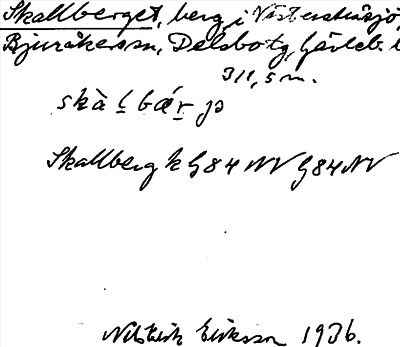 Skallberget, berg i Västerstråsjö,
Bjuråkers sn, Delsbo tg, Gävleb. l
311,5 m.
skà l bǽr jə
Skallberg k G 84 NV G 84 NV
Nils Erik Eriksson 1936.